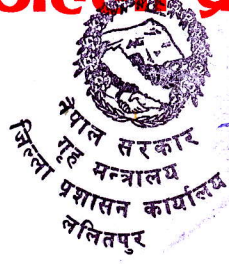 नेपाल सरकार
गृह मन्त्रालय
जिल्ला प्रशासन कार्यालय
ललितपुर